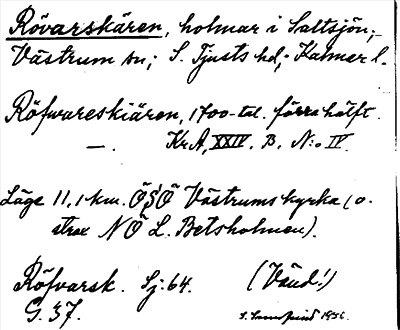 Rövarskären, holmar i Saltsjön;-
Västrum sn; S. Tjusts hd;- Kalmar l.
Röfwareskiären, 1700-tal. förra hälft.
—. Kr.A, XXIV. B. N:o IV.
Läge 11,1 km. ÖSÖ Västrums kyrka (o.
strax NÖ L. Betsholmen).
Röfvarsk. Sj: 64. (Vänd!)
G. 37. 1936.